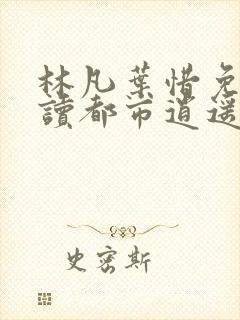 林凡葉惜免
讀都市逍遥
史密斯